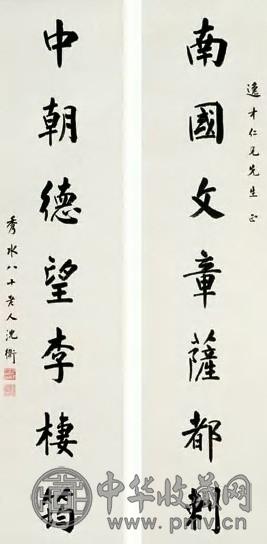 逸才仁兄先生正
南國文章薩都剌
中朝德望李棲筠
秀水八十老人沈衛
中华收藏网